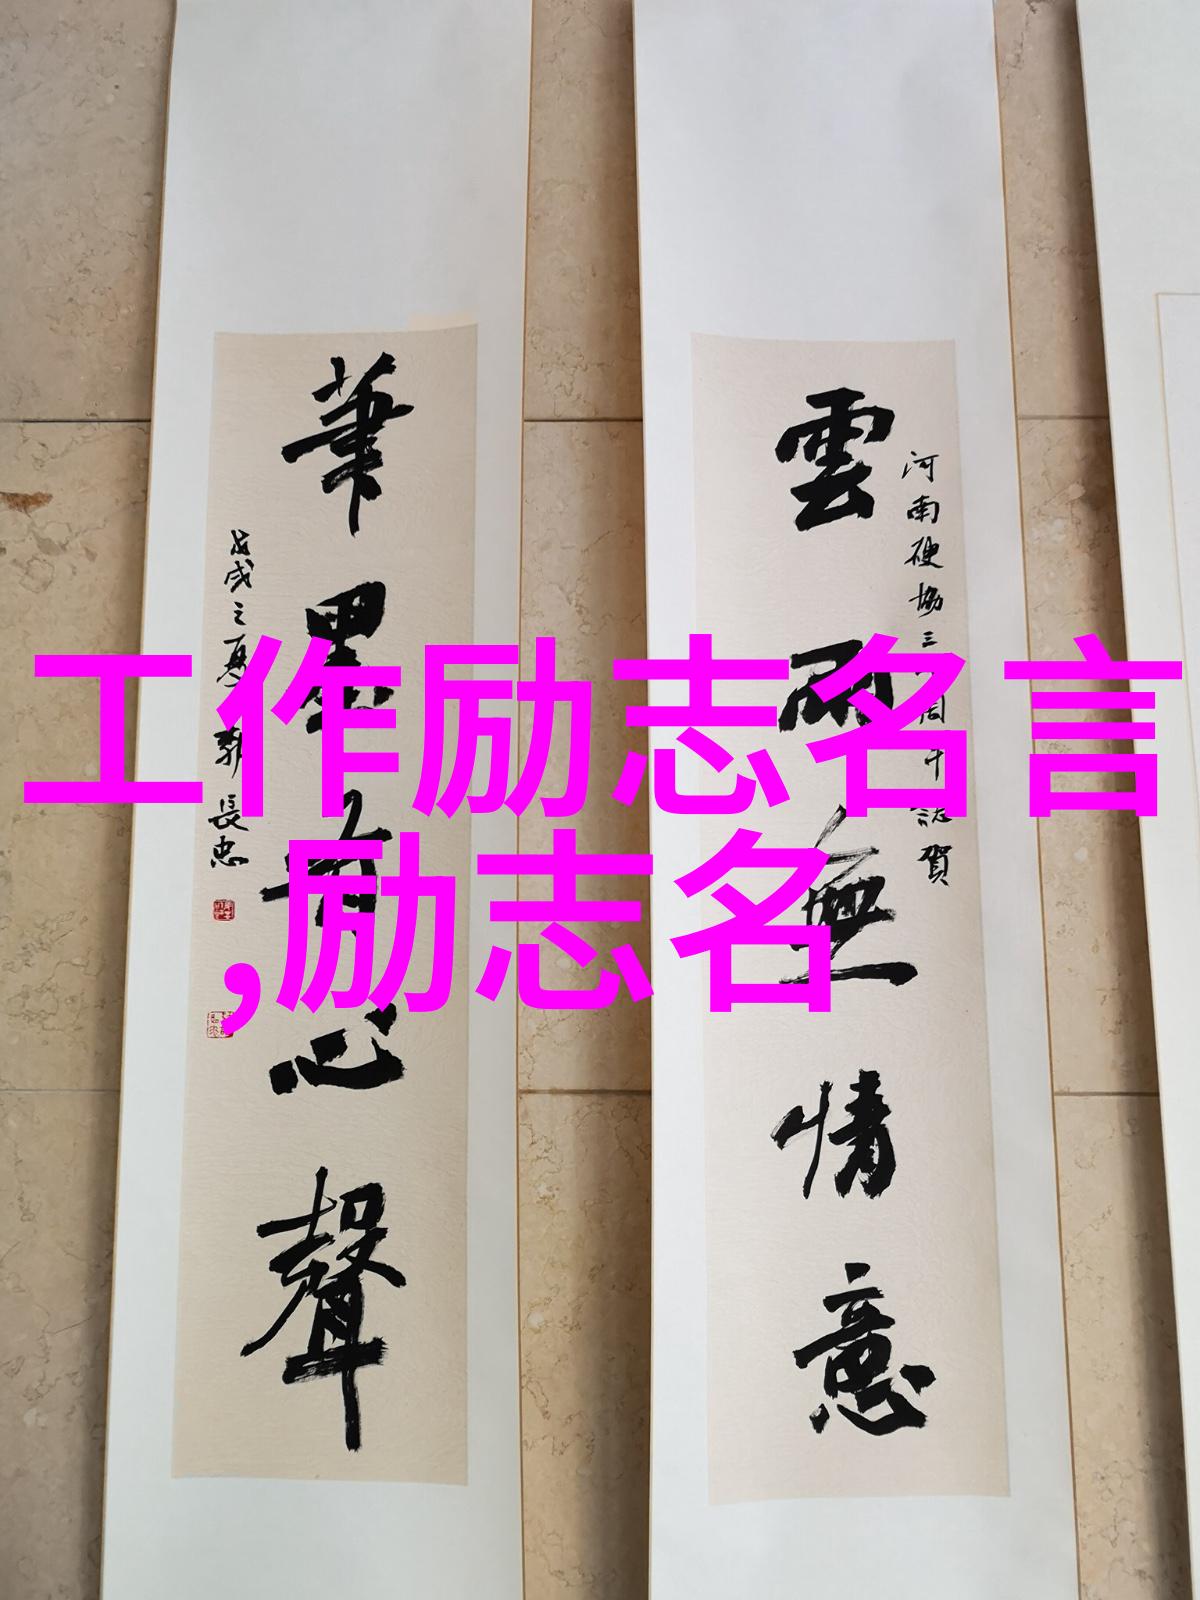 工作励志名言
,励志名
雲雨無情意
河南硬協三周年誌賀
筆墨有心聲
戊戌之夏
長忠